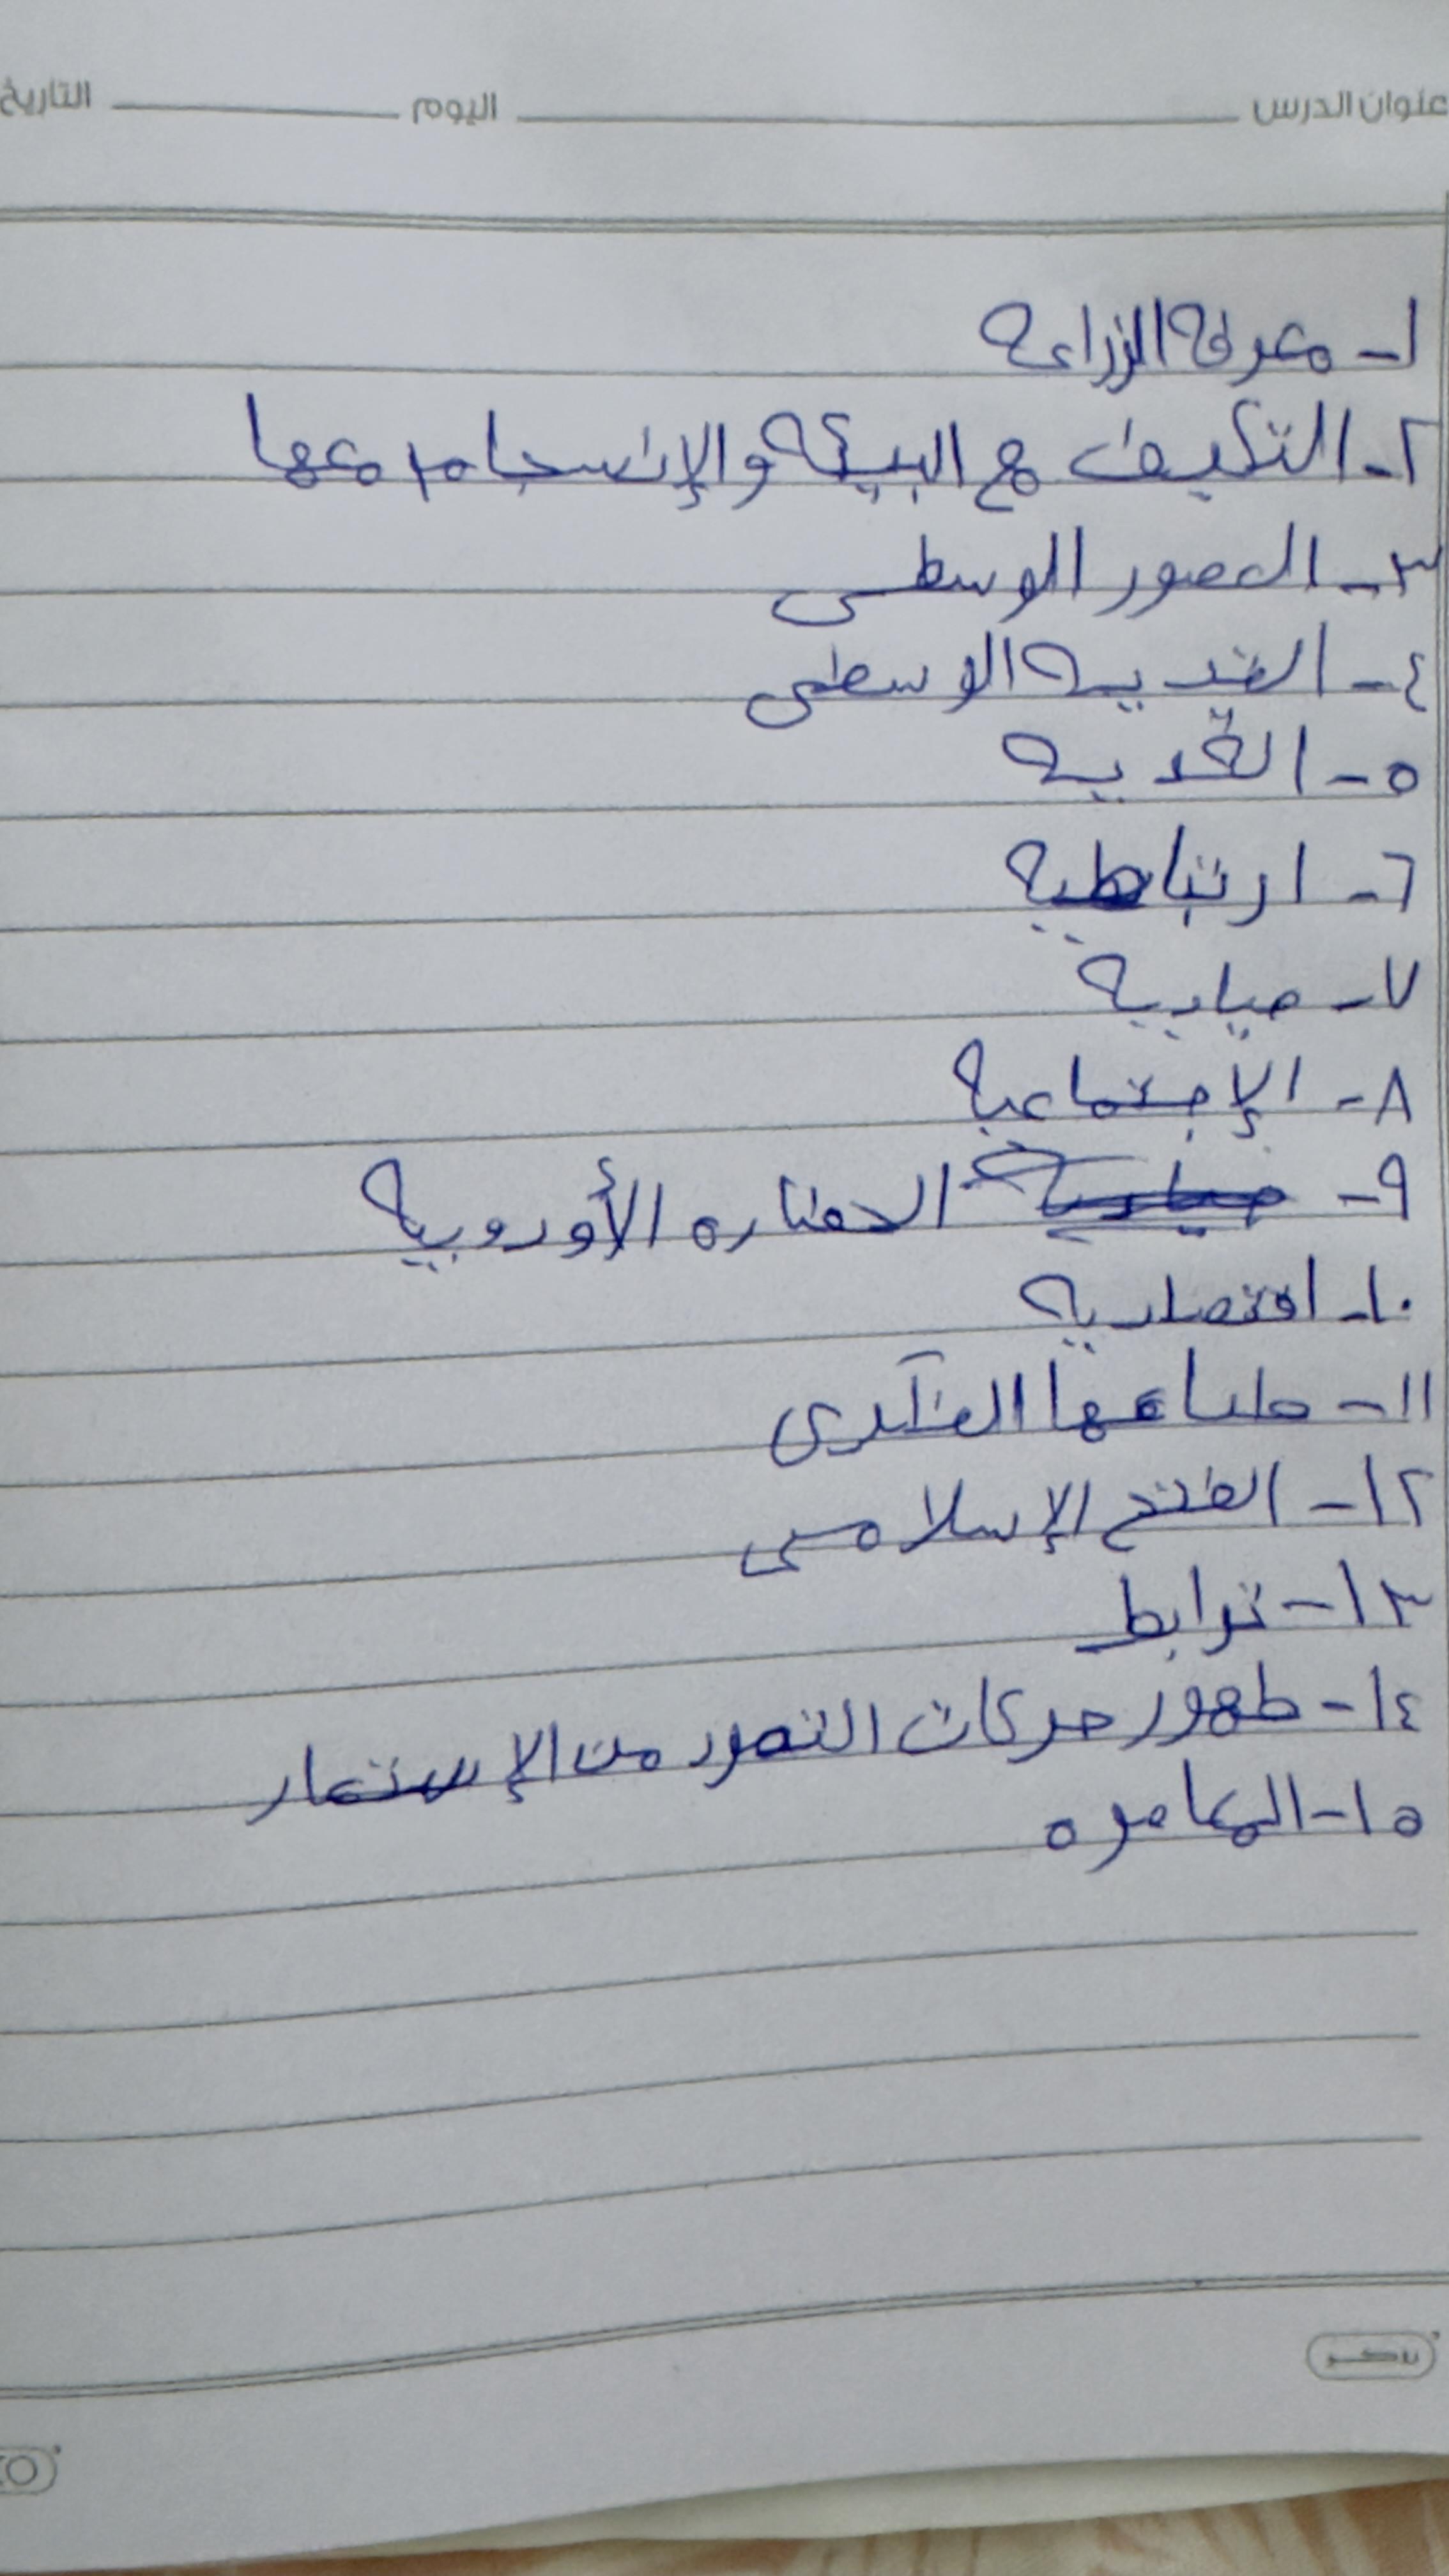 عنوان الدرس اليوم التاريخ
١- معرفة الزراعة
٢- التكيف مع البيئة والإنسجام معها
٣- العصور الوسطى
٤- القديمة الوسطى
٥- القديمة
٦- ارتباطية
٧- حيادية
٨- الإجتماعية
٩- الحضاره الأوروبية
١٠- اقتصادية
١١- طباعها الفكرى
١٢- الفتح الإسلامى
١٣- ترابط
١٤- ظهور حركات التحرر من الإستعمار
١٥- المعاصره